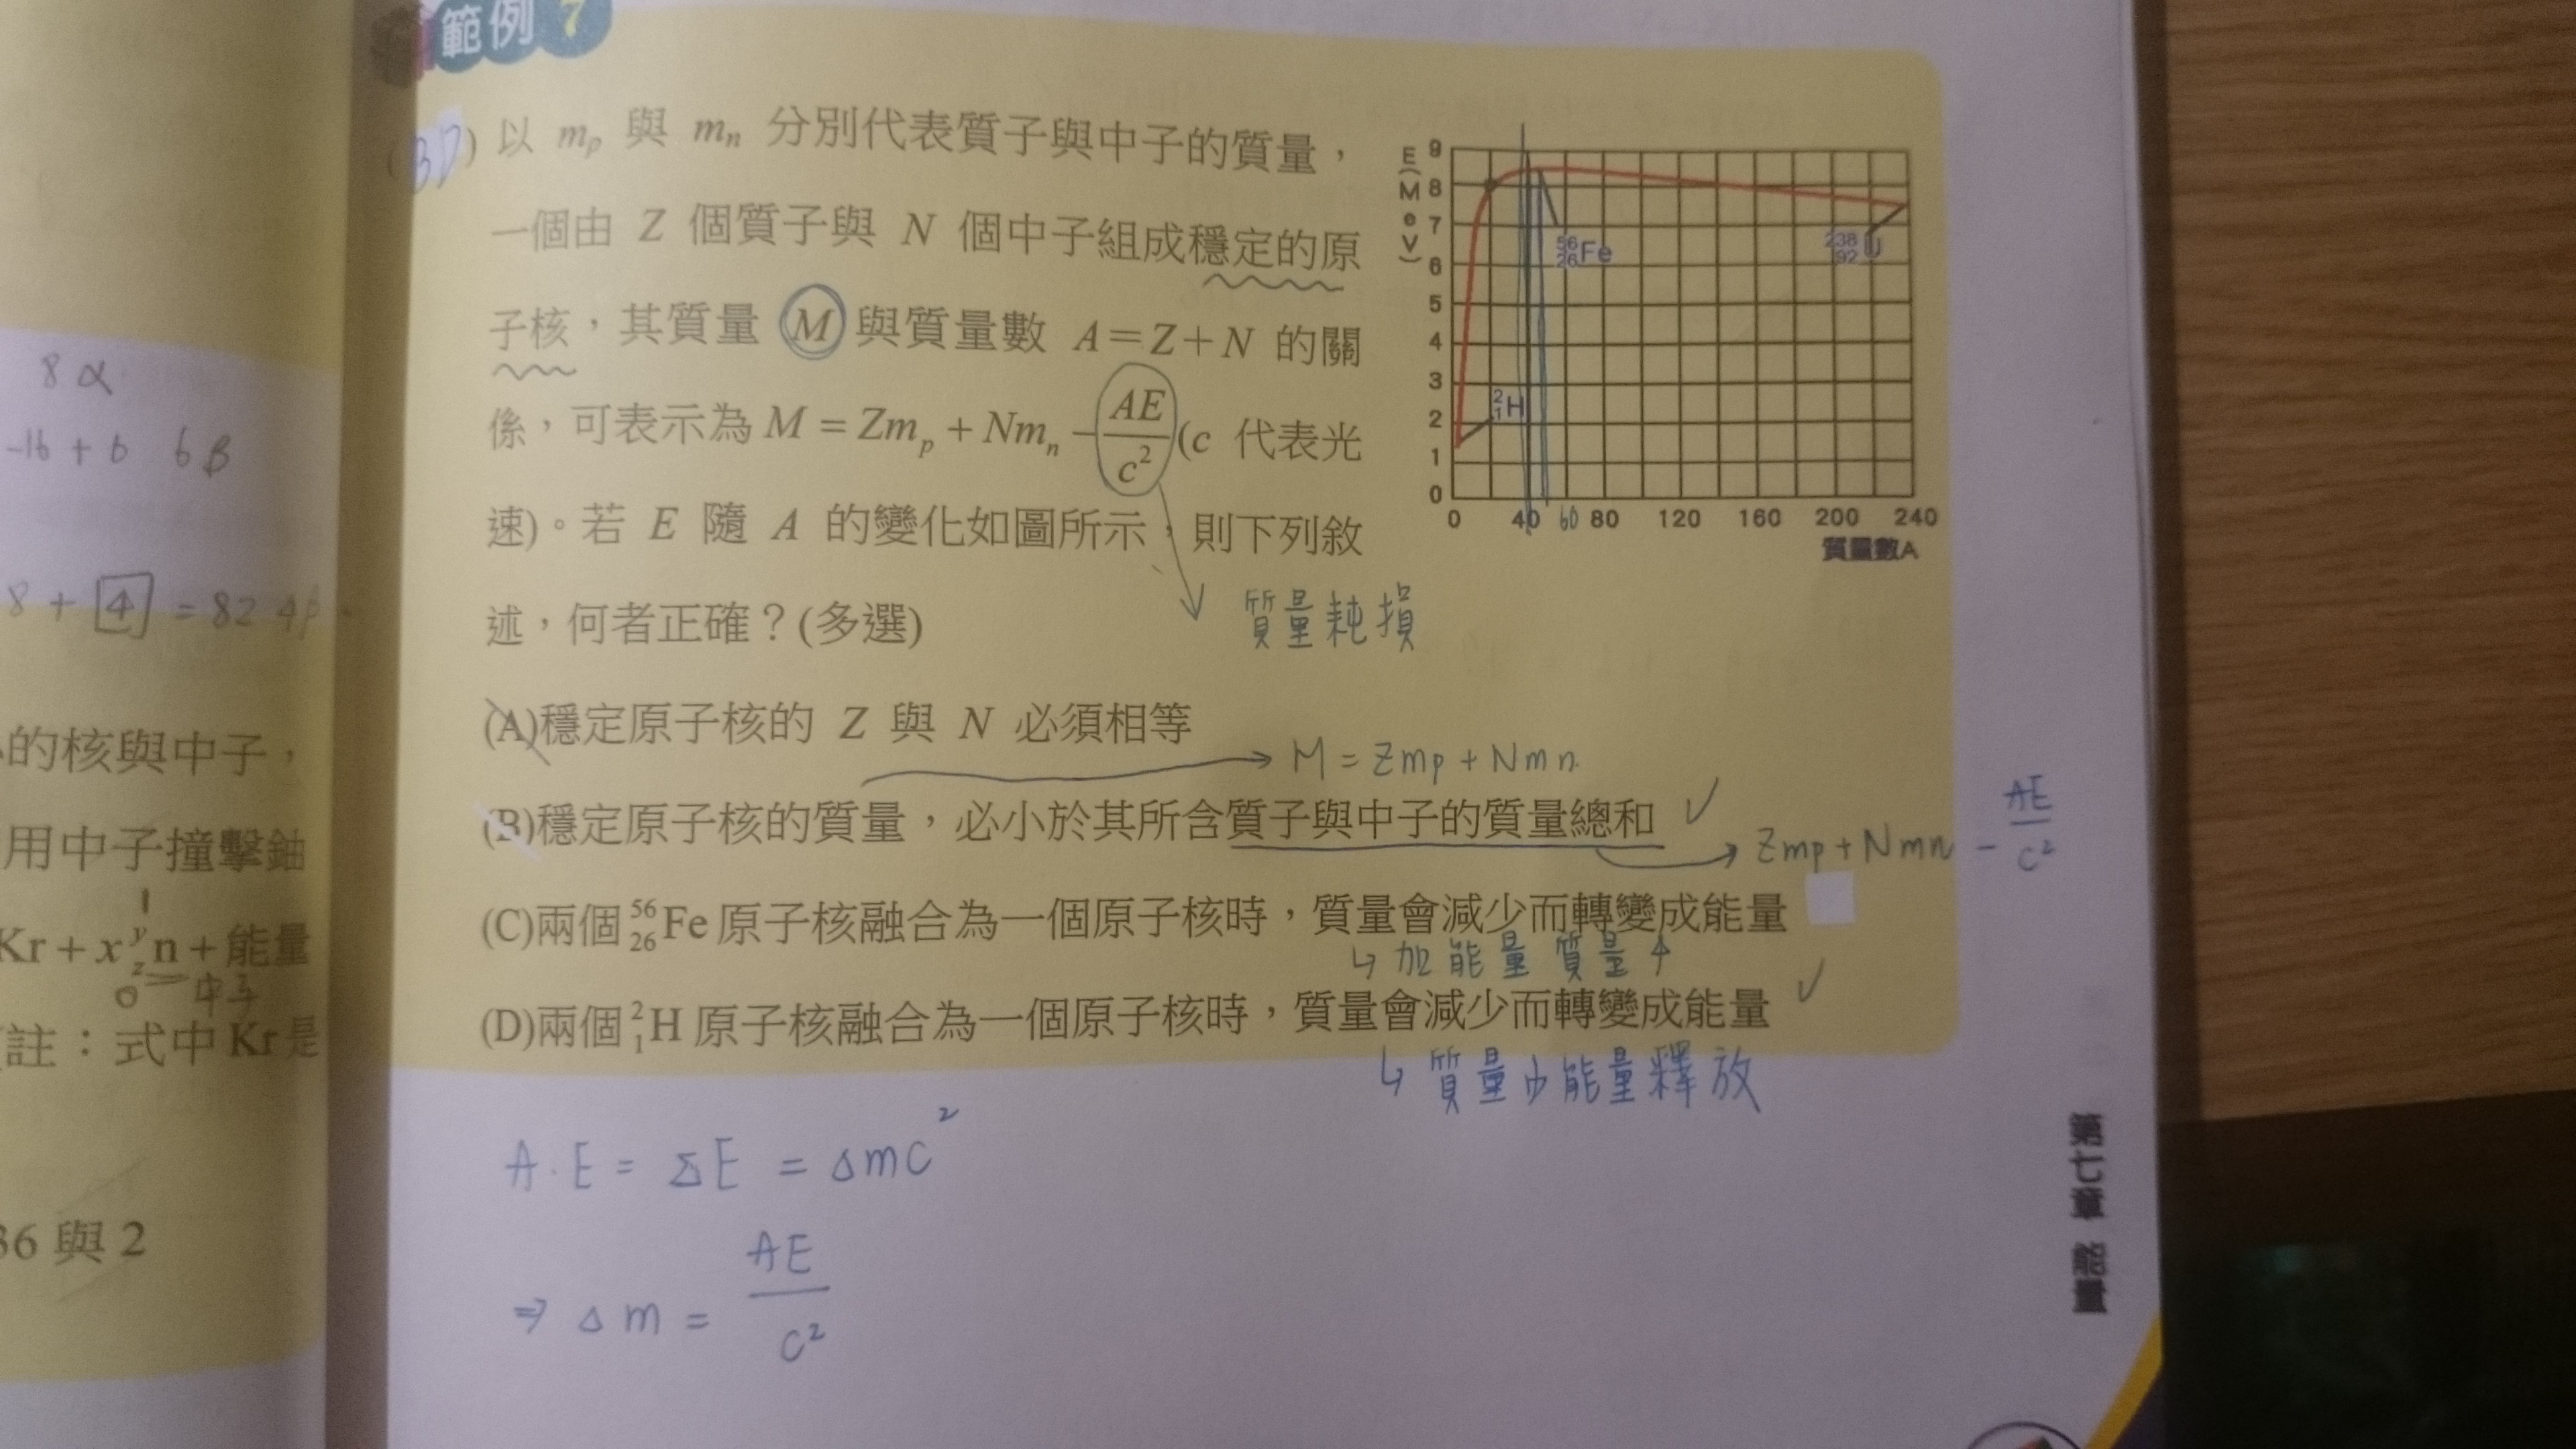 範例 7
(BD) 以 mp 與 mn 分別代表質子與中子的質量，
一個由 Z 個質子與 N 個中子組成穩定的原
子核，其質量 M 與質量數 A=Z+N 的關
係，可表示為 M = Zmp + Nmn - AE/c² (c 代表光
速)。若 E 隨 A 的變化如圖所示，則下列敘
述，何者正確？(多選)
質量耗損
E(MeV)
9
8
7
6
5
4
3
2
1
0
⁵⁶₂₆Fe
²³⁸₉₂U
²₁H
0 40 60 80 120 160 200 240
質量數A
(A)穩定原子核的 Z 與 N 必須相等
M = Zmp + Nmn
(B)穩定原子核的質量，必小於其所含質子與中子的質量總和 ✓
Zmp + Nmn - AE/c²
(C)兩個⁵⁶₂₆Fe 原子核融合為一個原子核時，質量會減少而轉變成能量
↳ 加能量質量↑
(D)兩個²₁H 原子核融合為一個原子核時，質量會減少而轉變成能量 ✓
↳ 質量 能量釋放
A·E = ΔE = Δmc²
⇒ Δm = AE/c²
第七章 能量
8α
-16 + 6 6β
8 + 4 = 82 4β
的核與中子，
用中子撞擊鈾
Kr + x ʸ_z n + 能量
1
0 中子
註：式中 Kr 是
36 與 2